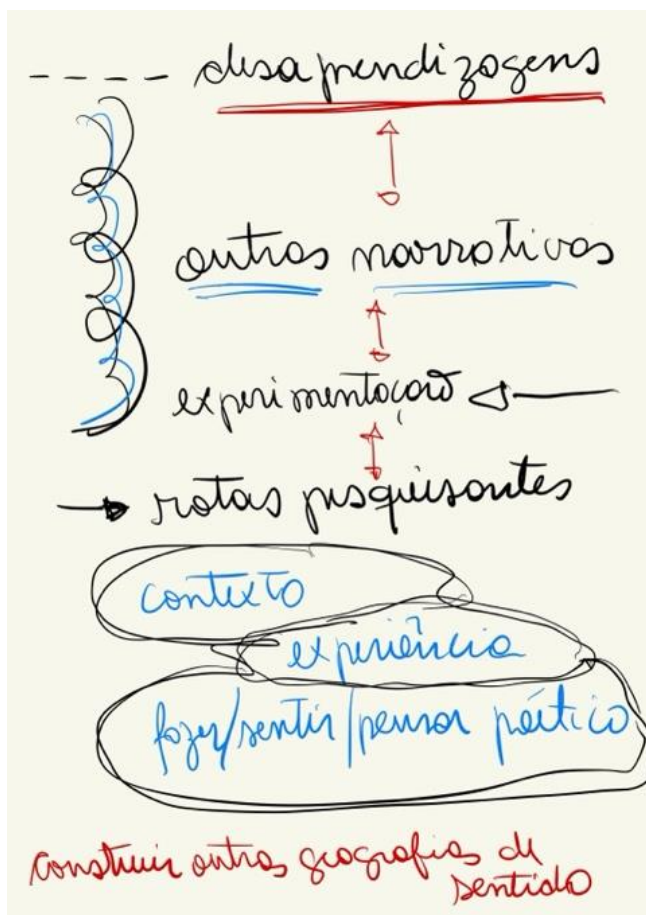 desaprendizagens
outras narrativas
experimentação
rotas pesquisantes
contexto
experiência
fazer/sentir/pensar poético
construir outras geografias de
sentido